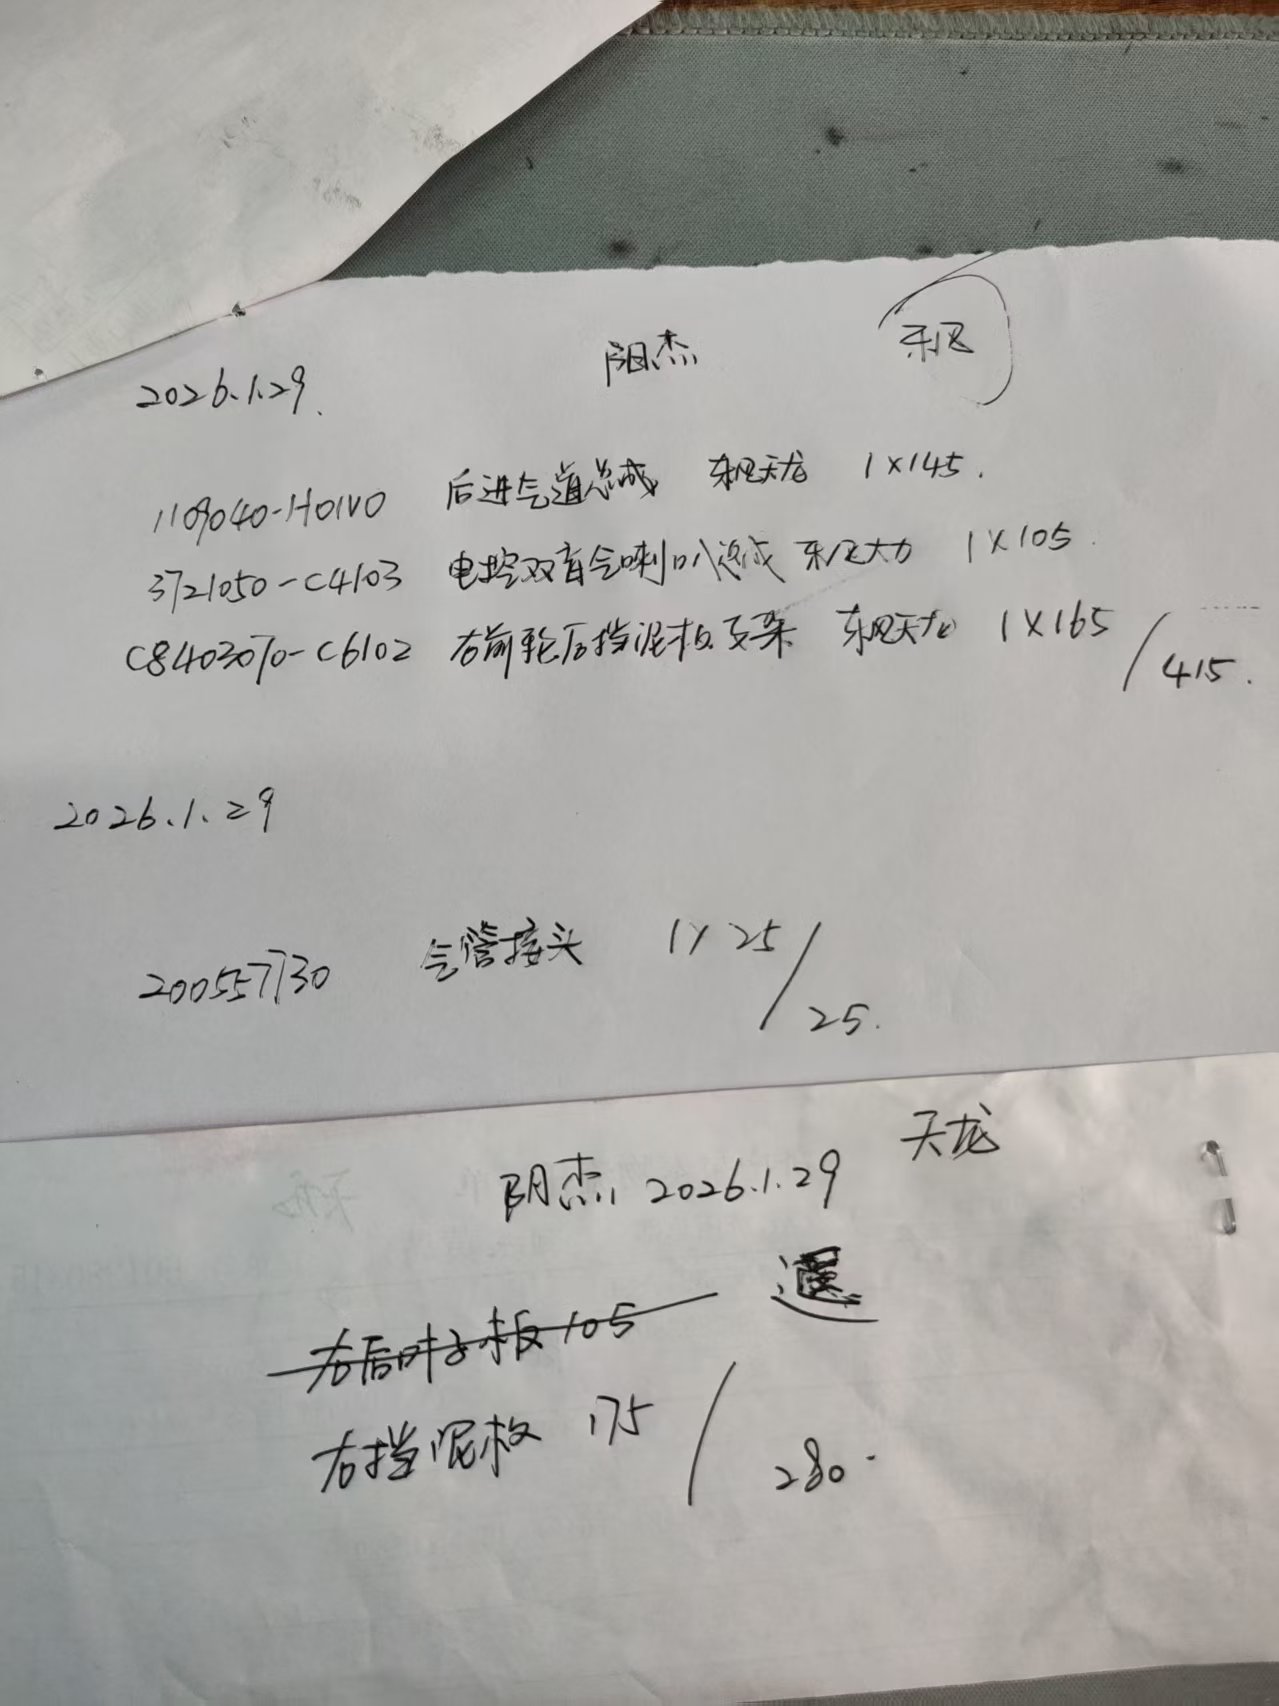 阳杰 东风
2026.1.29.
1109040-H01V0 后进气道总成 东风天龙 1×145.
3721050-C4103 电控双音气喇叭总成 东风大力 1×105
C8403070-C6102 右前轮后挡泥板支架 东风天龙 1×165 / 415.
2026.1.29
200557730 气管接头 1×25 / 25.
阴杰 2026.1.29 天龙
右后叶子板 105 退
右挡泥板 175 / 280.